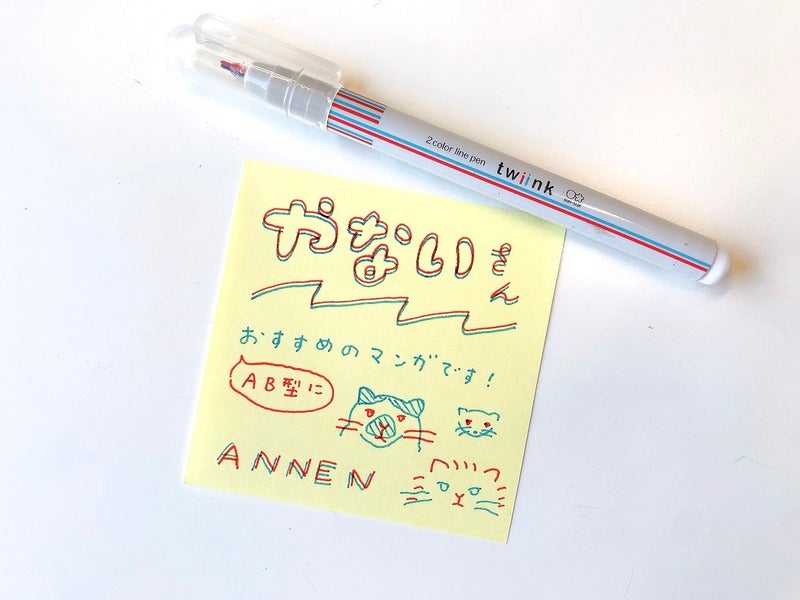 2 color line pen twiink
やないさん
おすすめのマンガです!
AB型に
ANNEN